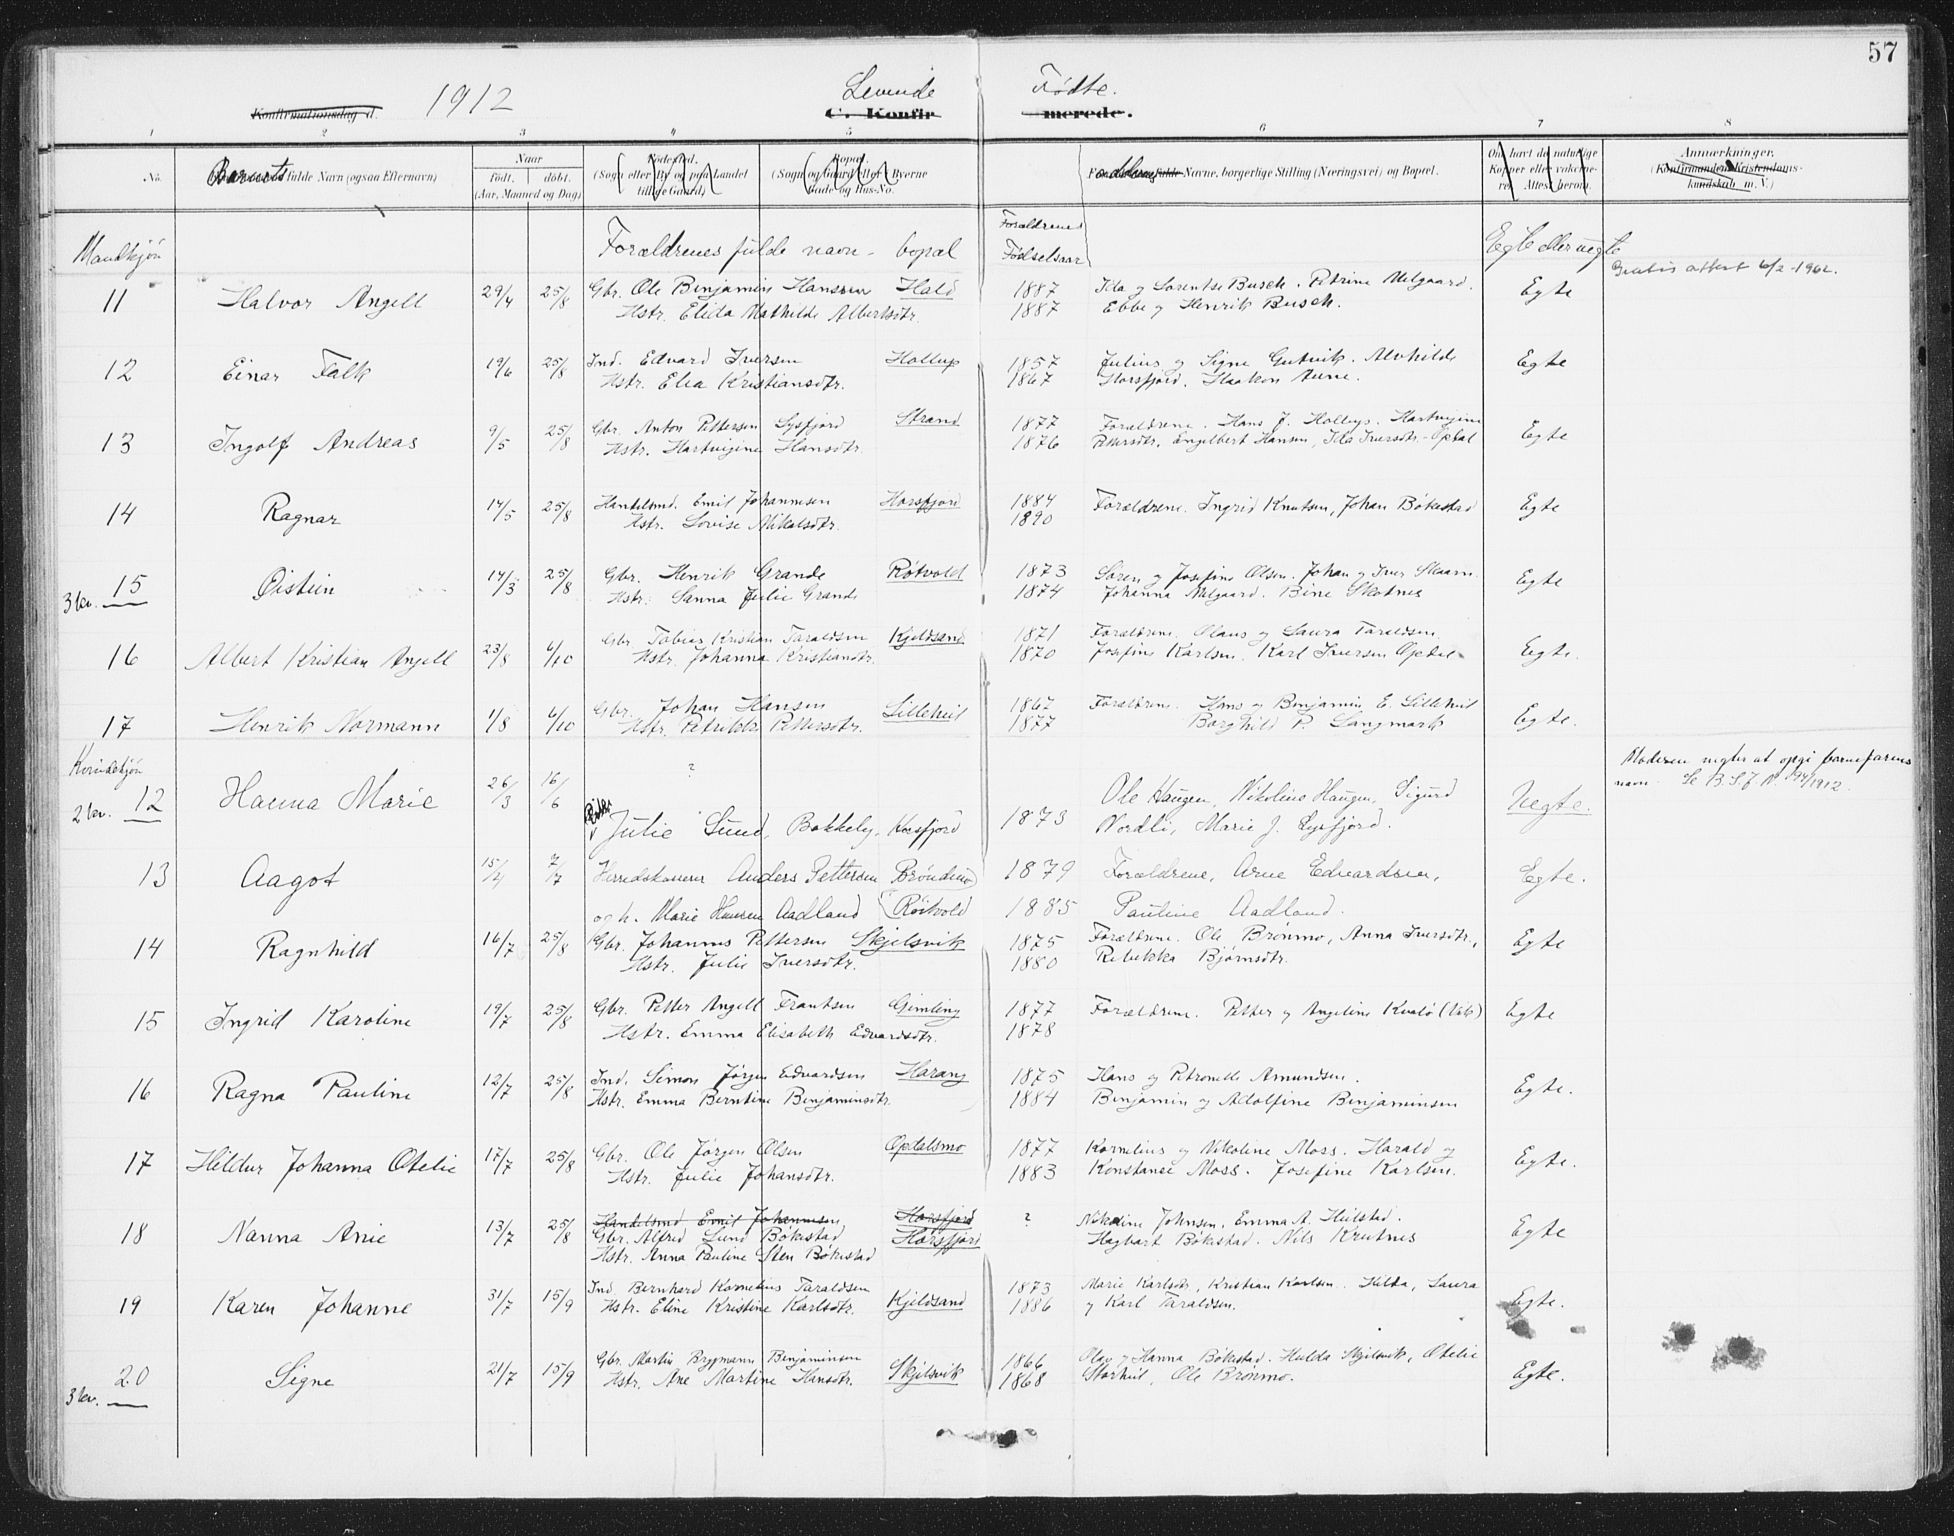 57
1912 Levende Fødte.
Konfirmationsdag d. C. Konfirmerede.
1 2 3 4 5 6 7 8
No. Barnets fulde Navn (ogsaa Efternavn)
Naar
Født. døbt.
(Aar, Maaned og Dag)
Fødested.
(Sogn eller By og paa Landet
tillige Gaard)
Bopæl.
(Sogn og Gaard eller i Byerne
Gade og Hus-No.
Navne, borgerlige Stilling (Næringsvei) og Bopæl.
Om havt de naturlige
Kopper eller vakcine-
ret. Attest herom.
Anmærkninger.
(Konfirmandens Kristendoms-
kundskab m. V.)
Mandkjøn
Forældrenes fulde navn - bopæl
Forældrenes
Fødselsaar
Egte eller uegte
Gratis attest 6/2-1962.
11 Halvor Angell 29/4 25/8 Gbr. Ole Benjamin Hanssen Hald 1887 Ida og Sorentse Busch. Petrine Melgaard. Egte
Hstr. Elida Mathilde Albertsdtr. 1887 Ebbe og Henrik Busch.
12 Einar Falk 19/6 25/8 Ind. Edvard Iversen Hollup 1857 Julius og Signe Gutvik. Alvhilde Egte
Hstr. Elea Kristiansdtr. 1867 Horsfjord. Haakon Aune.
13 Ingolf Andreas 9/5 25/8 Gbr. Anton Pettersen Lysfjord Strand 1877 Forældrene. Hans J. Hollup. Hartvigine Egte
Hstr. Hartvigine Hansdtr. 1876 Pettersdtr. Engelbert Hansen, Ida Iversdtr. Opdal
14 Ragnar 14/5 25/8 Handelsmd. Emil Johannesen Horsfjord 1884 Forældrene. Ingrid Knutsen, Johan Bökestad Egte
Hstr. Lovise Nikolsdtr. 1890
15 Øistein 14/3 25/8 Gbr. Henrik Grande Rötvold 1873 Sören og Josefine Olsen. Johan og Iver Skaarn. Egte
3 lev. Hstr. Sanna Julie Grande 1874 Johanna Melgaard. Bine Skotnes
16 Albert Kristian Angell 23/8 6/10 Gbr. Tobias Kristian Taraldsen Kjeldsand 1871 Forældrene. Olaus og Laura Taraldsen Egte.
Hstr. Johanna Kristiansdtr. 1870 Josefine Karlsen. Karl Iversen Opdal
17 Henrik Normann 1/8 6/10 Gbr. Johan Hansen Lilleheil 1867 Forældrene. Hans og Benjamin E. Lilleheil Egte.
Hstr. Petrikke Pettersdtr. 1877 Borghild P. Langmark
Kvindekjøn
12 Hanna Marie 26/3 16/6 ? Ole Haugen, Nikoline Haugen, Sigurd Uegte.
2 lev. Julie Lund, Bakkely, Horsfjord 1873 Nordli, Marie J. Lysfjord.
Moderen negter at opgi barnefarens
navn. Se B.S.f. N. 94/1912.
13 Aagot 15/4 7/7 Herredskasserer Anders Pettersen Bröndmo 1879 Forældrene, Arne Edvardsen, Egte.
og h. Marie Hansen Aadland (Röitvold 1885 Pauline Aadland.
14 Ragnhild 16/7 25/8 Gbr. Johannes Pettersen Skjelsvik 1875 Forældrene. Ole Brönmo, Anna Iversdtr., Egte
Hstr. Julie Iversdtr. 1880 Rebekka Bjørnsdtr.
15 Ingrid Karoline 19/7 25/8 Gbr. Petter Angell Frantsen Gimling 1877 Forældrene. Petter og Angeline Kvalö Egte
Hstr. Emma Elisabeth Edvardsdtr. 1878
16 Ragna Pauline 12/7 25/8 Ind. Simon Jörgen Edvardsen Harang 1875 Hans og Petronelle Amundsen. Egte.
Hstr. Emma Berntine Benjaminsdtr. 1884 Benjamin og Adolfine Benjaminsen
17 Heldur Johanna Otelie 17/7 25/8 Gbr. Ole Jörgen Olsen Opdalsmo 1877 Kornelius og Nikoline Moss. Harald og Egte.
Hstr. Julie Johansdtr. 1883 Konstanse Moss. Josefine Karlsen.
18 Nanna Anie 13/7 25/8 Handelsmd Emil Johannesen Horsfjord ? Nikoline Johnsen, Emma A. Heilstad. Egte
Gbr. Alfred Lund Bökestad Horsfjord Hagbart Bökestad. Nils Krutnes
Hstr. Anna Pauline Sten Bökestad
19 Karen Johanne 31/7 15/9 Ind Bernhard Kornelius Taraldsen Kjeldsand 1873 Marie Karlsdtr, Kristian Karlsen. Hilda, Laura Egte.
Hstr. Eline Kristine Karlsdtr. 1886 og Karl Taraldsen.
20 Signe 21/7 15/9 Gbr. Martin Brygmann Benjaminsen Skjelsvik 1866 Olav og Hanna Bökestad. Hulda Skjelsvik, Otelie Egte.
3 lev. Hstr. Ane Martine Hansdtr. 1868 Storheil, Ole Brönmo.